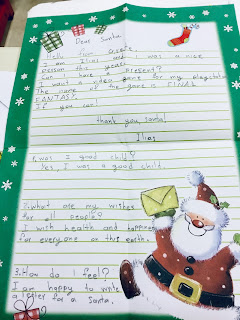 Dear Santa,
Hello from Crete.
I am Ilias and I was a nice
person this year.
Can I have a present?
I want a video game for my playstation
The name of the game is FINAL
FANTASY.
If you can!
thank you santa!
Ilias
1. was I good child?
Yes, I was a good child.
2. What are my wishes
for all people?
I wish health and happiness
for everyone on this earth.
3. How do I feel?
I am happy to write
a letter for a Santa.